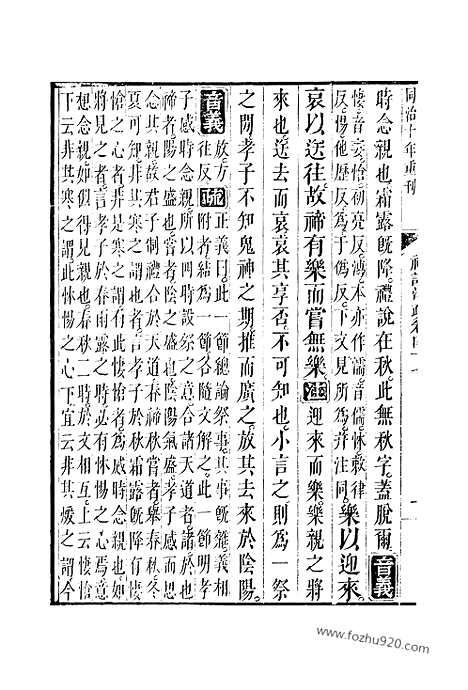 同治十年重刊
時念親也霜露既降禮說在秋此無秋字蓋脫爾音義
悽音妻愴初亮反濡本亦作濡音儒怵敕律
反惕他歷反爲于僞反下文見所爲并注同樂以迎來
哀以送往故禘有樂而嘗無樂注迎來而樂樂親之將
來也送去而哀哀其享否不可知也小言之則爲一祭
之間孝子不知鬼神之期推而廣之放其去來於陰陽
音義放方往反疏正義曰此一節緫論祭事其事既雜義相
附者結爲一節各隨文解之此一節明孝
子感時念親所以四時設祭之意合諸天道者諸於也
禘者陽之盛也嘗者陰之盛也陰陽氣盛孝子感而思
念其親故君子制禮合於天道春禘秋嘗者舉春秋冬
夏可知非其寒之謂也者言孝子於秋霜露既降有悽
愴之心者非是寒之謂有此悽愴者爲感時念親也如
將見之者言孝子於春雨露之時必有怵惕之心焉意
想念親如似得見親也春秋二時於文相互上云悽愴
下云非其寒之謂此怵惕之心下宜云非其煖之謂今
www.fozhu920.com